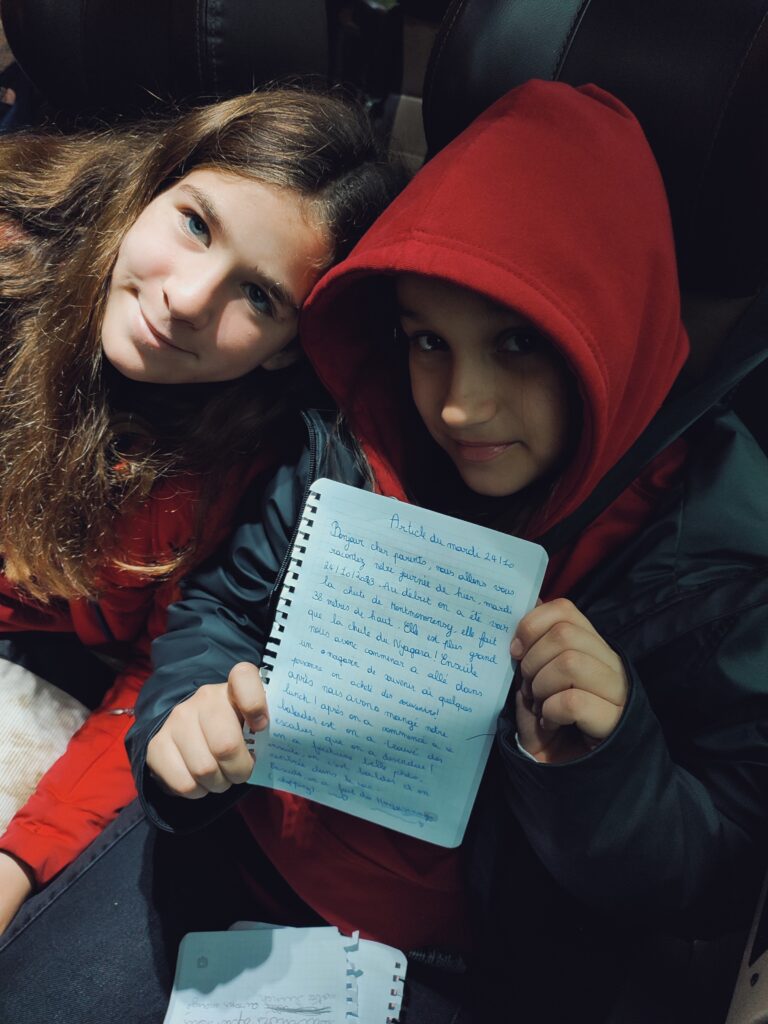 Article du mardi 24/10
Bonjour cher parents, nous allons vous
racontez notre journée de hier, mardi
24/10/2023. Au début on a été voir
la chute de Montmorency, elle fait
38 mètres de haut. Elle est plus grand
que la chute du Nyagara! Ensuite
nous avons commencer a allé dans
un magasin de souvenir où quelques
personne on acheté des souvenirs!
après nous avons mangé notre
lunch! après on a commencé a se
balader est on a trouvé des
escalier que on a descendue!
on a fait une belle photo.
ensuite on c'est balader et on
dans le car.
Ensuite on a fait du